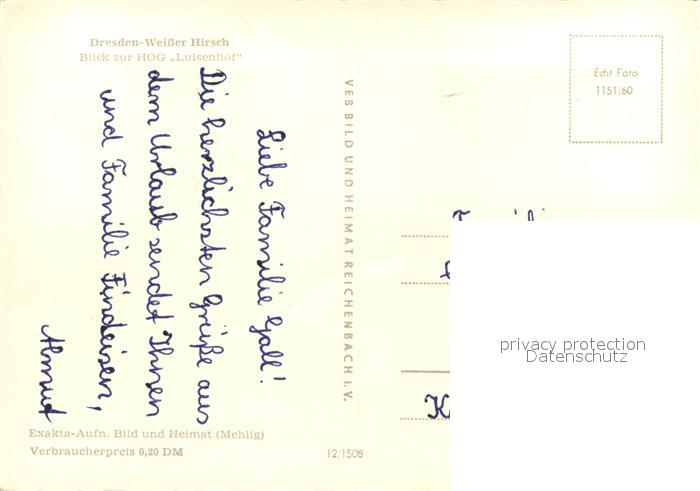 Dresden-Weißer Hirsch
Blick zur HOG „Luisenhof“
Liebe Familie Gall!
Die herzlichsten Grüße aus
dem Urlaub sendet Ihnen
und Familie Findeisen,
Almut
Exakta-Aufn. Bild und Heimat (Mehlig)
Verbraucherpreis 0,20 DM
VEB BILD UND HEIMAT REICHENBACH I. V.
12/1508
Echt Foto
1151/60
privacy protection
Datenschutz